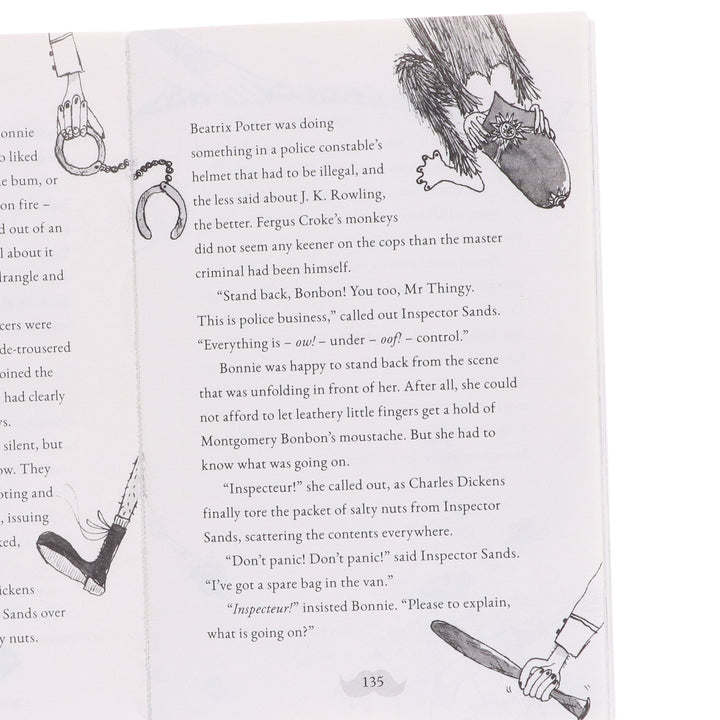 onnie
o liked
e bum, or
on fire –
d out of an
l about it
drangle and
cers were
de-trousered
oined the
had clearly
s.
silent, but
ow. They
oting and
, issuing
ked,
ickens
Sands over
y nuts.
Beatrix Potter was doing
something in a police constable’s
helmet that had to be illegal, and
the less said about J. K. Rowling,
the better. Fergus Croke’s monkeys
did not seem any keener on the cops than the master
criminal had been himself.
“Stand back, Bonbon! You too, Mr Thingy.
This is police business,” called out Inspector Sands.
“Everything is – ow! – under – oof! – control.”
Bonnie was happy to stand back from the scene
that was unfolding in front of her. After all, she could
not afford to let leathery little fingers get a hold of
Montgomery Bonbon’s moustache. But she had to
know what was going on.
“Inspecteur!” she called out, as Charles Dickens
finally tore the packet of salty nuts from Inspector
Sands, scattering the contents everywhere.
“Don’t panic! Don’t panic!” said Inspector Sands.
“I’ve got a spare bag in the van.”
“Inspecteur!” insisted Bonnie. “Please to explain,
what is going on?”
135